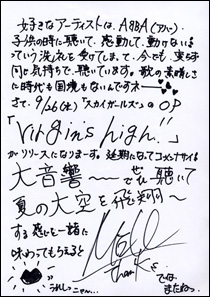 好きなアーティストは、ABBA(アバ)。
子供の時に聴いて、感動して、動けない…
っていう洗礼を受けてしまって、今でも、変らず
同じ気持ちで、聴いています。歌の素晴しさ
に時代も国境もないんですネ
さて、9/26(水)『スカイガールズ』のOP
「Virgin's high!」
がリリースになりまーす。延期になってゴメンナサイ
大音響〜で ぜひ 聴いて
夏の大空を飛翔〜
する感じを一緒に
味わってもらえると
うれしっ
ニャー
MELL
Thank
では
またねっ